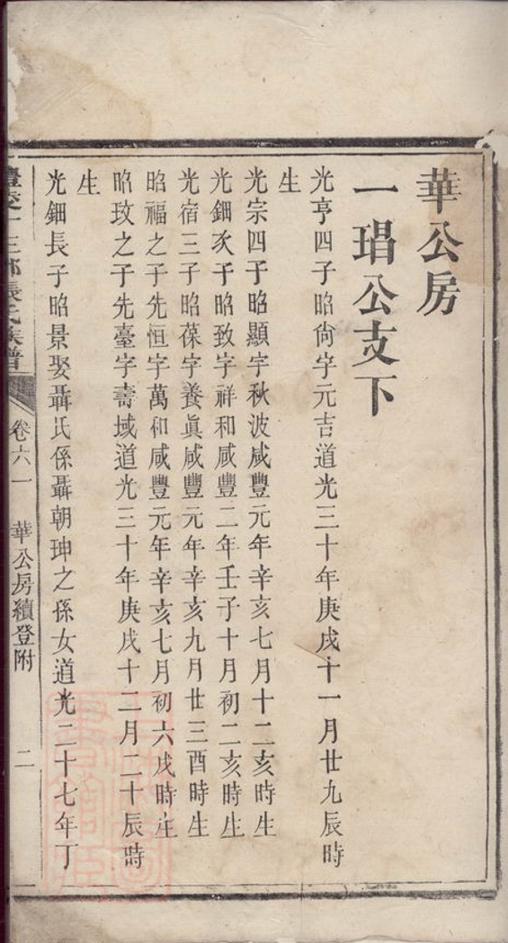 華公房
一琩公支下
光亨四子昭尙字元吉道光三十年庚戌十一月廿九辰時
生
光宗四子昭顯字秋波咸豐元年辛亥七月十二亥時生
光鈿次子昭致字祥和咸豐二年壬子十月初二亥時生
光宿三子昭葆字養眞咸豐元年辛亥九月廿三酉時生
昭福之子先恒字萬和咸豐元年辛亥七月初六戌時生
昭玫之子先臺字壽域道光三十年庚戌十二月二十辰時
生
光鈿長子昭景娶聶氏係聶朝珅之孫女道光二十七年丁
張氏族譜 卷六一 華公房續登附 二